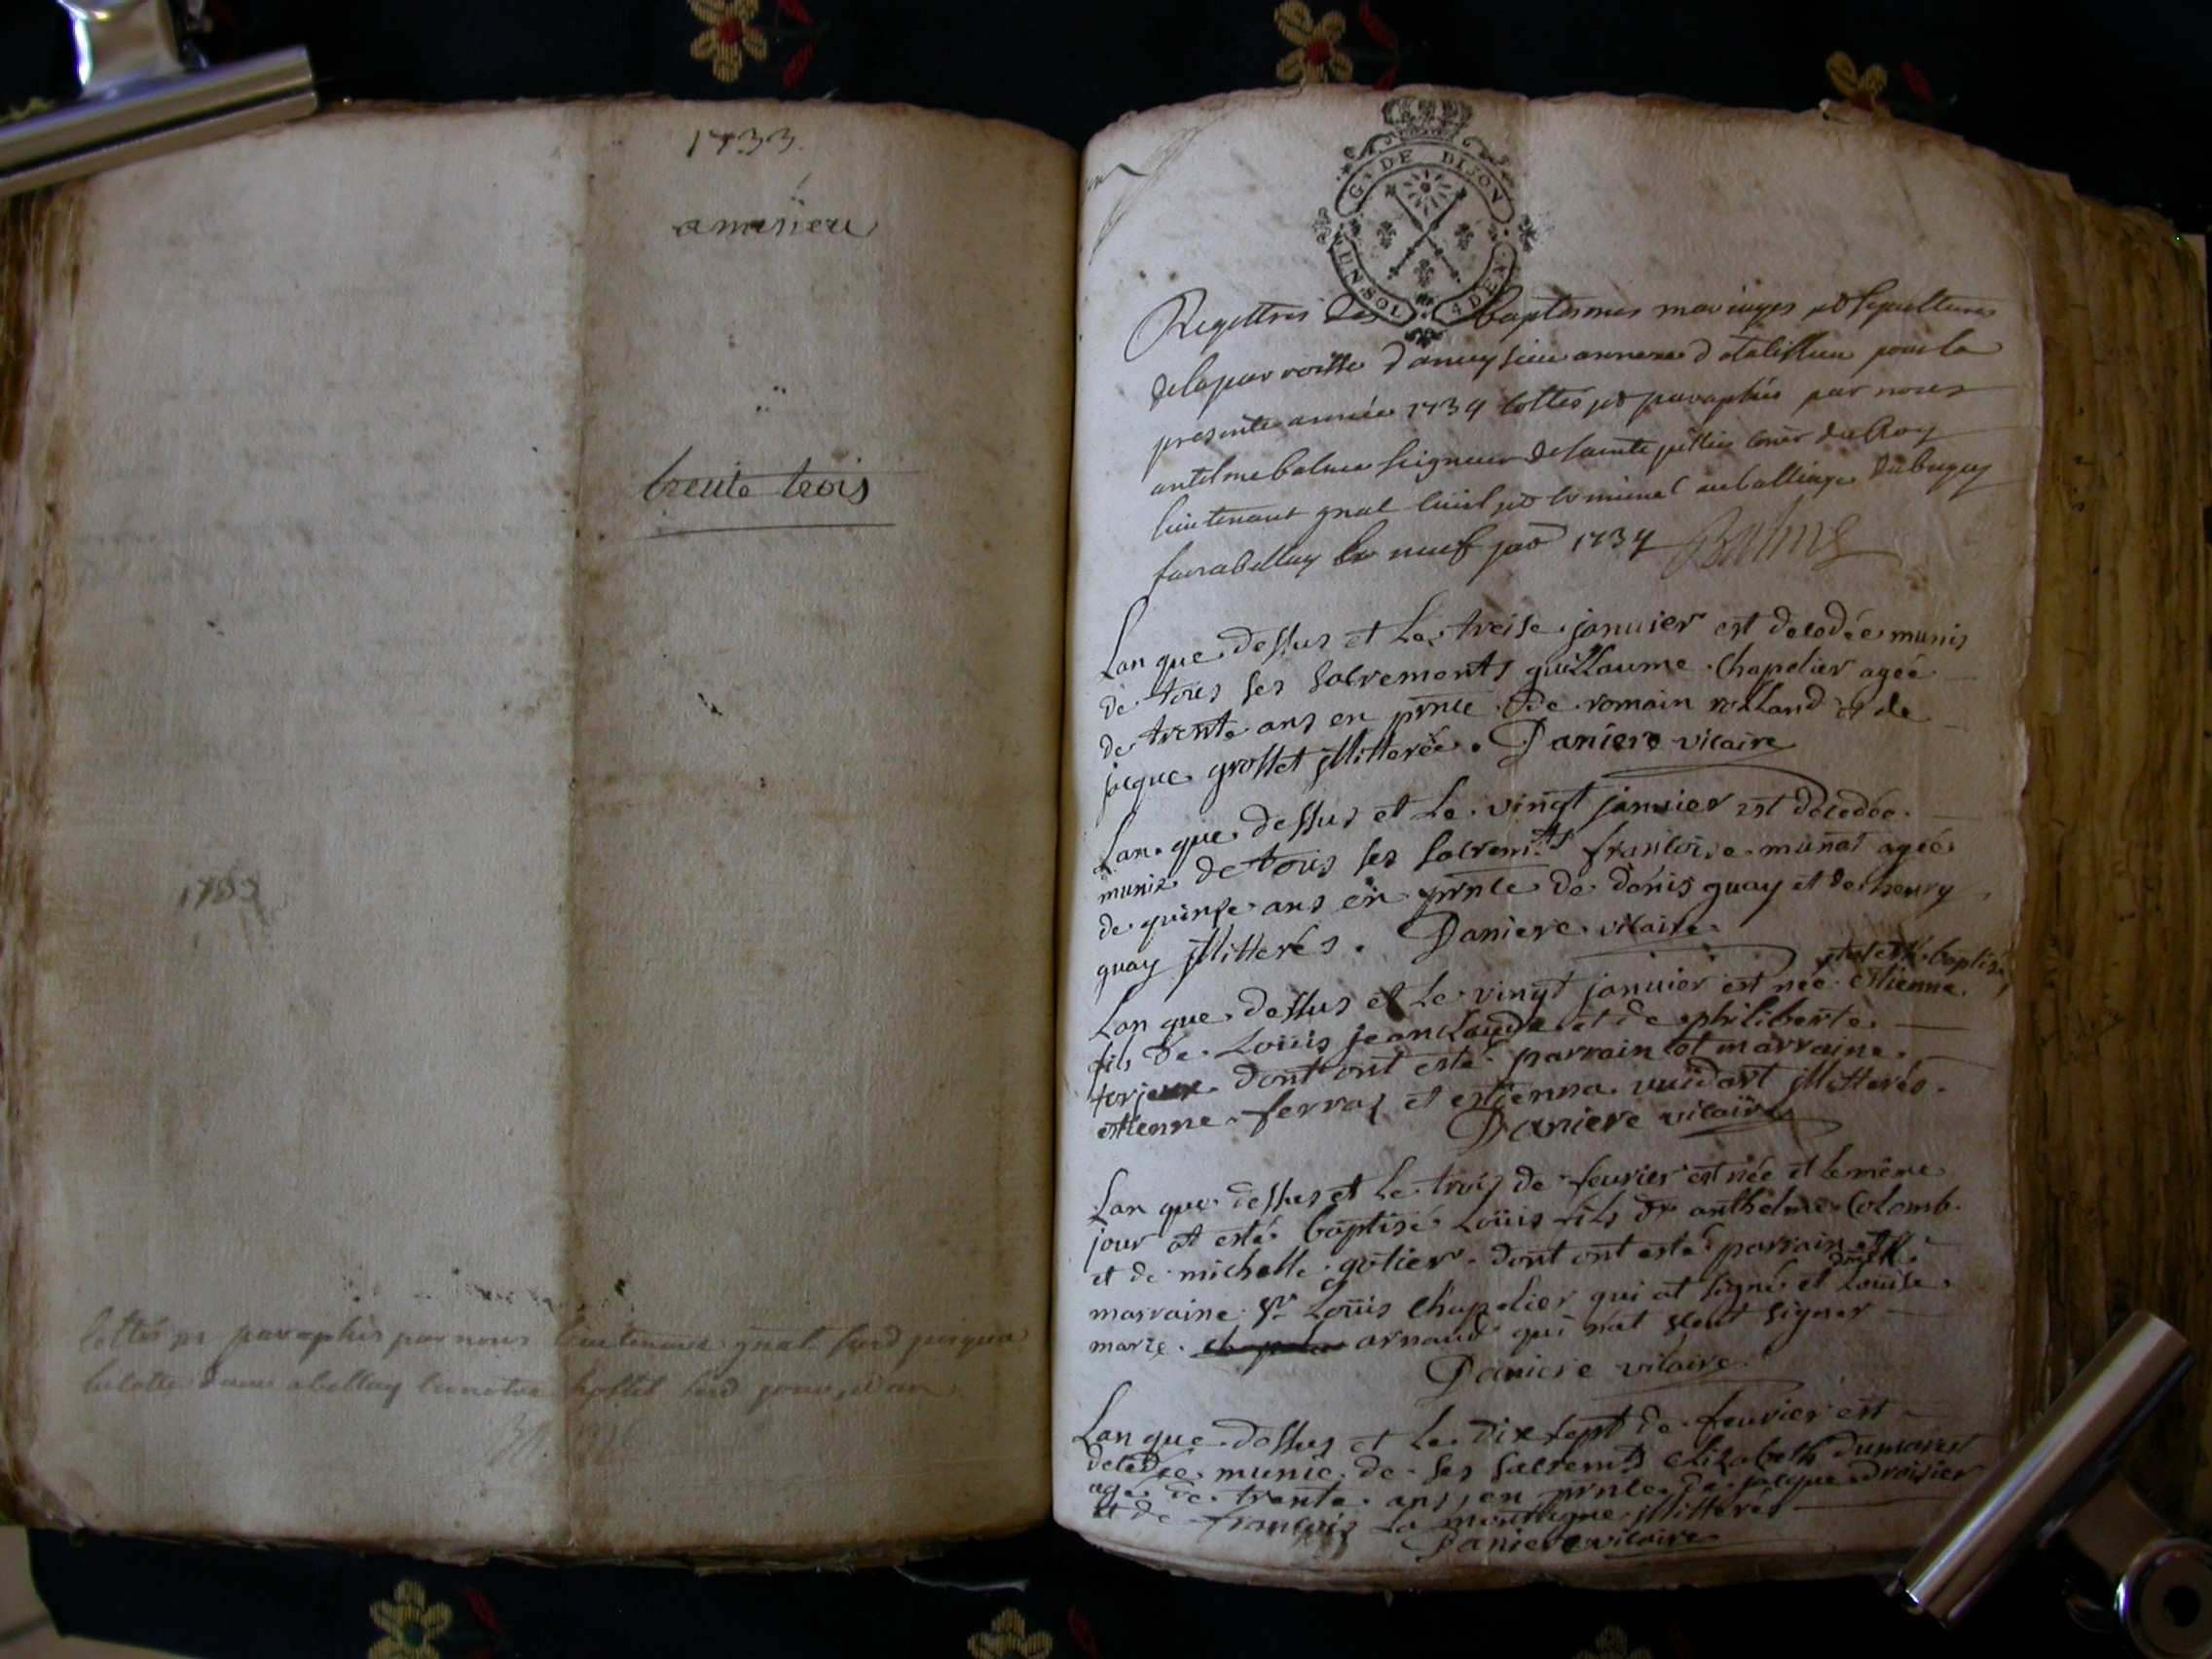 1733
ameisieu
trente trois
1733
Cottés et paraphés par nous lieutenant gnal
G. DE DIJON
UN SOL 4 DEN.
Registres des baptesmes mariages et sepultures
de la parroisse dameysieu annexe de talissieu pour la
presente année 1734 cottés et paraphés par nous
antelme balme seigneur de sainte jullie coner du Roy
lieutenant gnal civil et criminel au balliage du bugey
fait a belley le neuf jad 1734 Balme
Lan que dessus et Le treise januier est decedée munis
de tous ses sacrements guillaume Chapelier ageé
de trente ans en pnnce de romain rolland et de
jacque grosset jllitterée. Daniere vicaire
Lan que dessus et Le vingt januier est decedée
munie de tous ses sacremts francoise munet ageé
de quinse ans en pnnce de denis guay et de henry
guay jllitterés. Daniere vicaire
et at esté baptisé
Lan que dessus et Le vingt januier est née estienne
fils de Loüis jeanclaude et de philiberte
terjeux dont ont esté parrain et marraine
estienne ferraz et estienna vuidart jllitterés.
Daniere vicaire
Lan que dessus et Le trois de feurier est née et le même
jour at esté baptisé Loüis fils de anthelme Colomb
et de michelle gotier dont ont esté parrain et
marraine sr Loüis Chapelier qui at signé et Louise
marie arnaud qui nat sceut signer
Daniere vicaire
Lan que dessus et Le dix sept de feurier est
decedée munie de ses sacremts Elizabeth dumarest
agé de trente ans, en pnnce de jacque droisier
et de francois La montagne jllitterés
Daniere vicaire